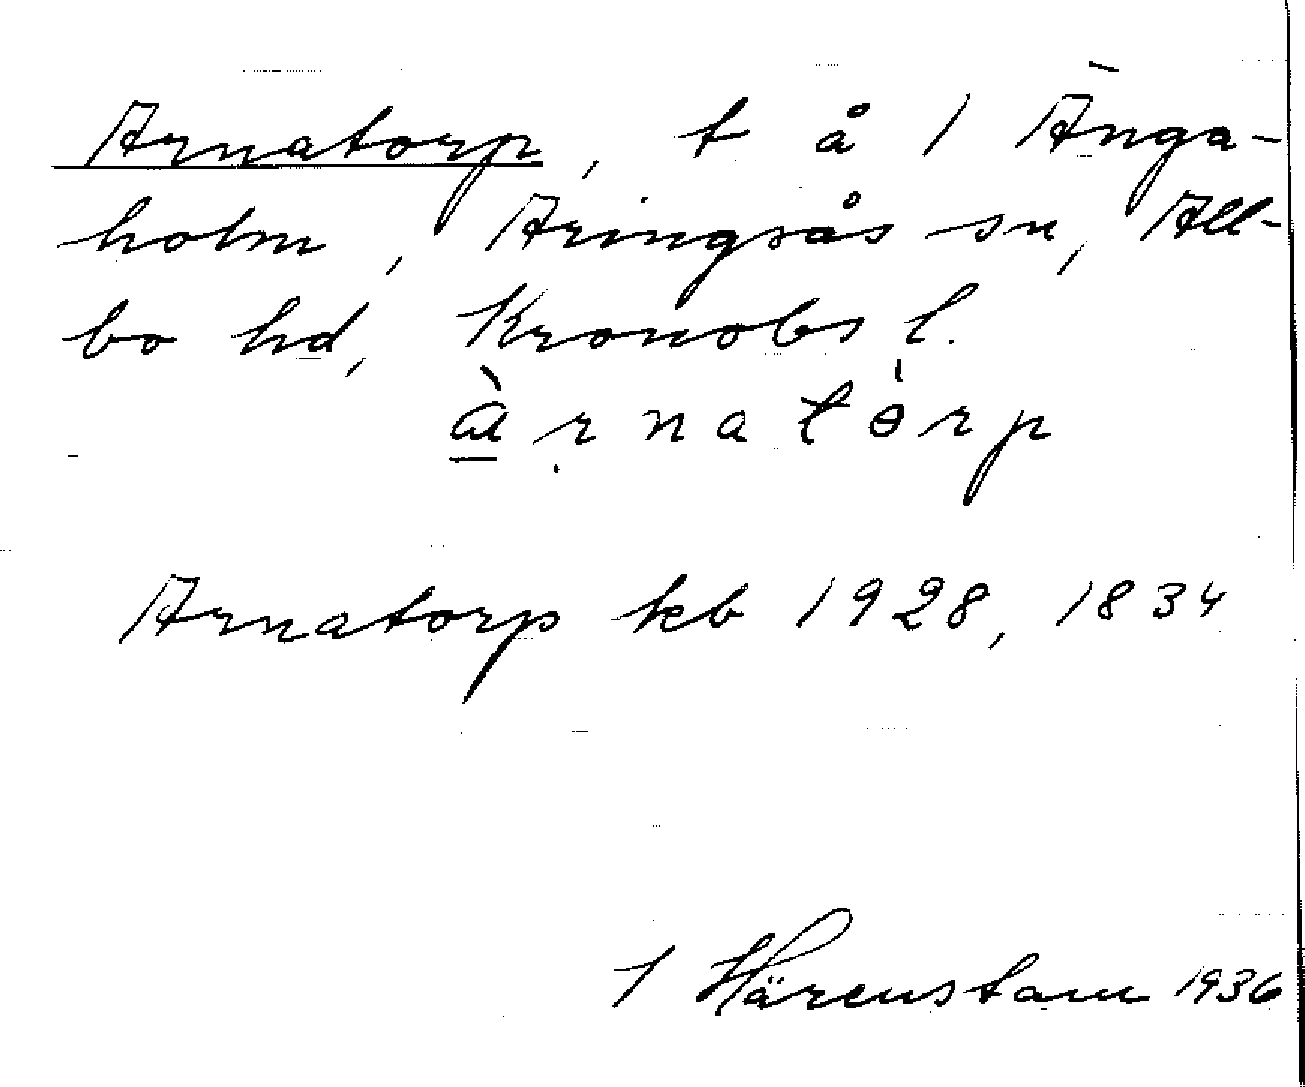 Arnatorp, t å 1 Änga-
holm, Aringsås sn, All-
bo hd, Kronobs l.
àrnatòrp
Arnatorp kb 1928, 1834
I Härenstam 1936